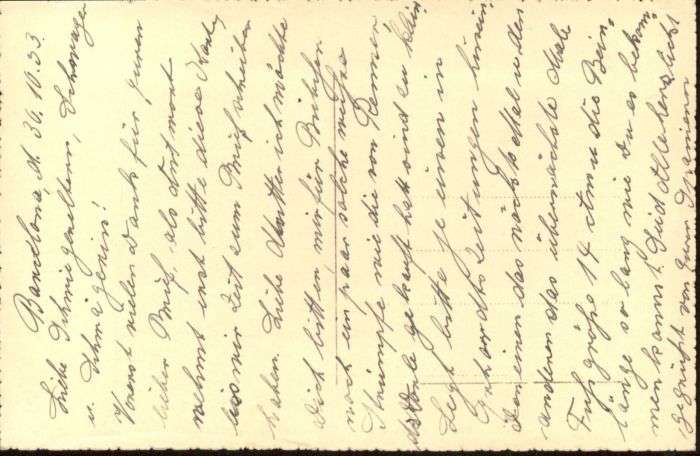 Barcelona, d. 30.10.33.
Liebe Schwiegereltern, Schwager
u. Schwägerin!
Vorerst vielen Dank für euren
lieber Brief, als Antwort
nehmt erst bitte diese Karte,
bis wir Zeit zum Brief schreiben
haben. Liebe Mutter ich möchte
Dich bitten, mir für Brüderchen
noch ein paar solche weiße
Strümpfe wie die von
gekauft hat sind zu klein.
Legt bitte je einen in
Zeitungen hinein
den einen das nächste Mal u. den
anderen das übernächste Mal.
Fußgröße 14 ctm u die Bein-
länge so lang wie Du es bekom-
men kannst. Seid Alle herzlichst
gegrüßt von Euren Spaniern